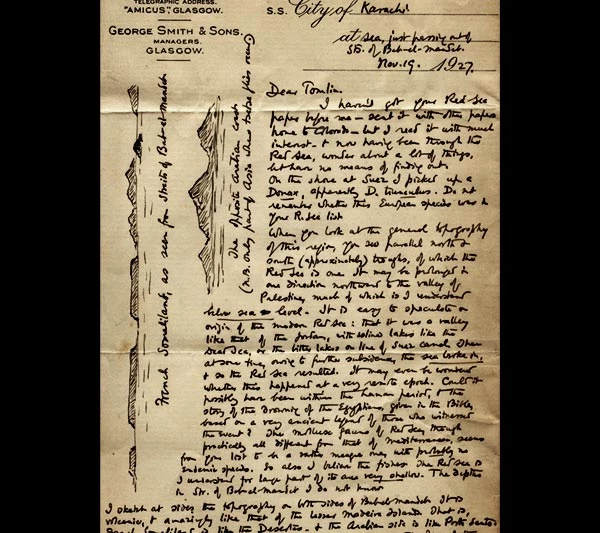 TELEGRAPHIC ADDRESS.
"AMICUS", GLASGOW.
GEORGE SMITH & SONS.
MANAGERS.
GLASGOW.
S.S. City of Karachi
at sea, just passing out of
Str. of Bab-el-Mandeb.
Nov. 19. 1927.
Dear Tomlin.
I haven't got your Red Sea
paper before me – sent it with other papers
home to Colorado – but I read it with much
interest & now having been through the
Red Sea, wonder about a lot of things,
but have no means of finding out.
On the shore at Suez I picked up a
Donax, apparently D. trunculus. Do not
remember whether this European species was in
your R. Sea list
When you look at the general topography
of this region, you see parallel north &
south (approximately) troughs, of which the
Red Sea is one. It may be prolonged in
one direction northward to the valley of
Palestine, much of which is I understand
below sea level. It is easy to speculate on
origin of the modern Red Sea: that it was a valley
like that of the Jordan, with saline lakes like the
Dead Sea, or the bitter lakes on line of Suez canal. Then
at some time, owing to further subsidence, the sea broke in,
& so the Red Sea resulted. It may even be wondered
whether this happened at a very remote epoch. Could it
possibly have been within the human period, & the
story of the drowning of the Egyptians, given in the Bible,
based on a very ancient legend of those who witnessed
the event? The mollusc fauna of Red Sea, though
practically all different from that of mediterranean, seems
from your list to be a rather meagre one, with probably no
endemic species. So also I believe the fishes. The Red Sea is
I understand for large part of its area very shallow. The depths
in Str. of Bab-el-Mandeb I do not know.
I sketch at sides the topography on both sides of Bab-el-Mandeb. It is
volcanic, & amazingly like that of the lesser Madeira Islands. That is,
French Somaliland is like the Desertas, & the Arabian side is like Porto Santo
French Somaliland, as seen from Straits of Bab-el-Mandeb
The opposite Arabian coast.
(N.B. only part of Asia where tsetse flies occur)